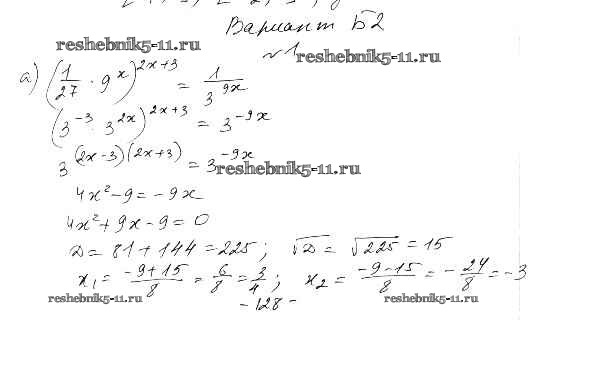 Вариант Б2
reshebnik5-11.ru
№1
reshebnik5-11.ru
а) (1/27 · 9^x)^(2x+3) = 1/3^(9x)
(3^(-3) · 3^(2x))^(2x+3) = 3^(-9x)
3^((2x-3)(2x+3)) = 3^(-9x)
reshebnik5-11.ru
4x² - 9 = -9x
4x² + 9x - 9 = 0
D = 81 + 144 = 225; √D = √225 = 15
x₁ = (-9+15)/8 = 6/8 = 3/4; x₂ = (-9-15)/8 = -24/8 = -3
reshebnik5-11.ru
- 128 -
reshebnik5-11.ru